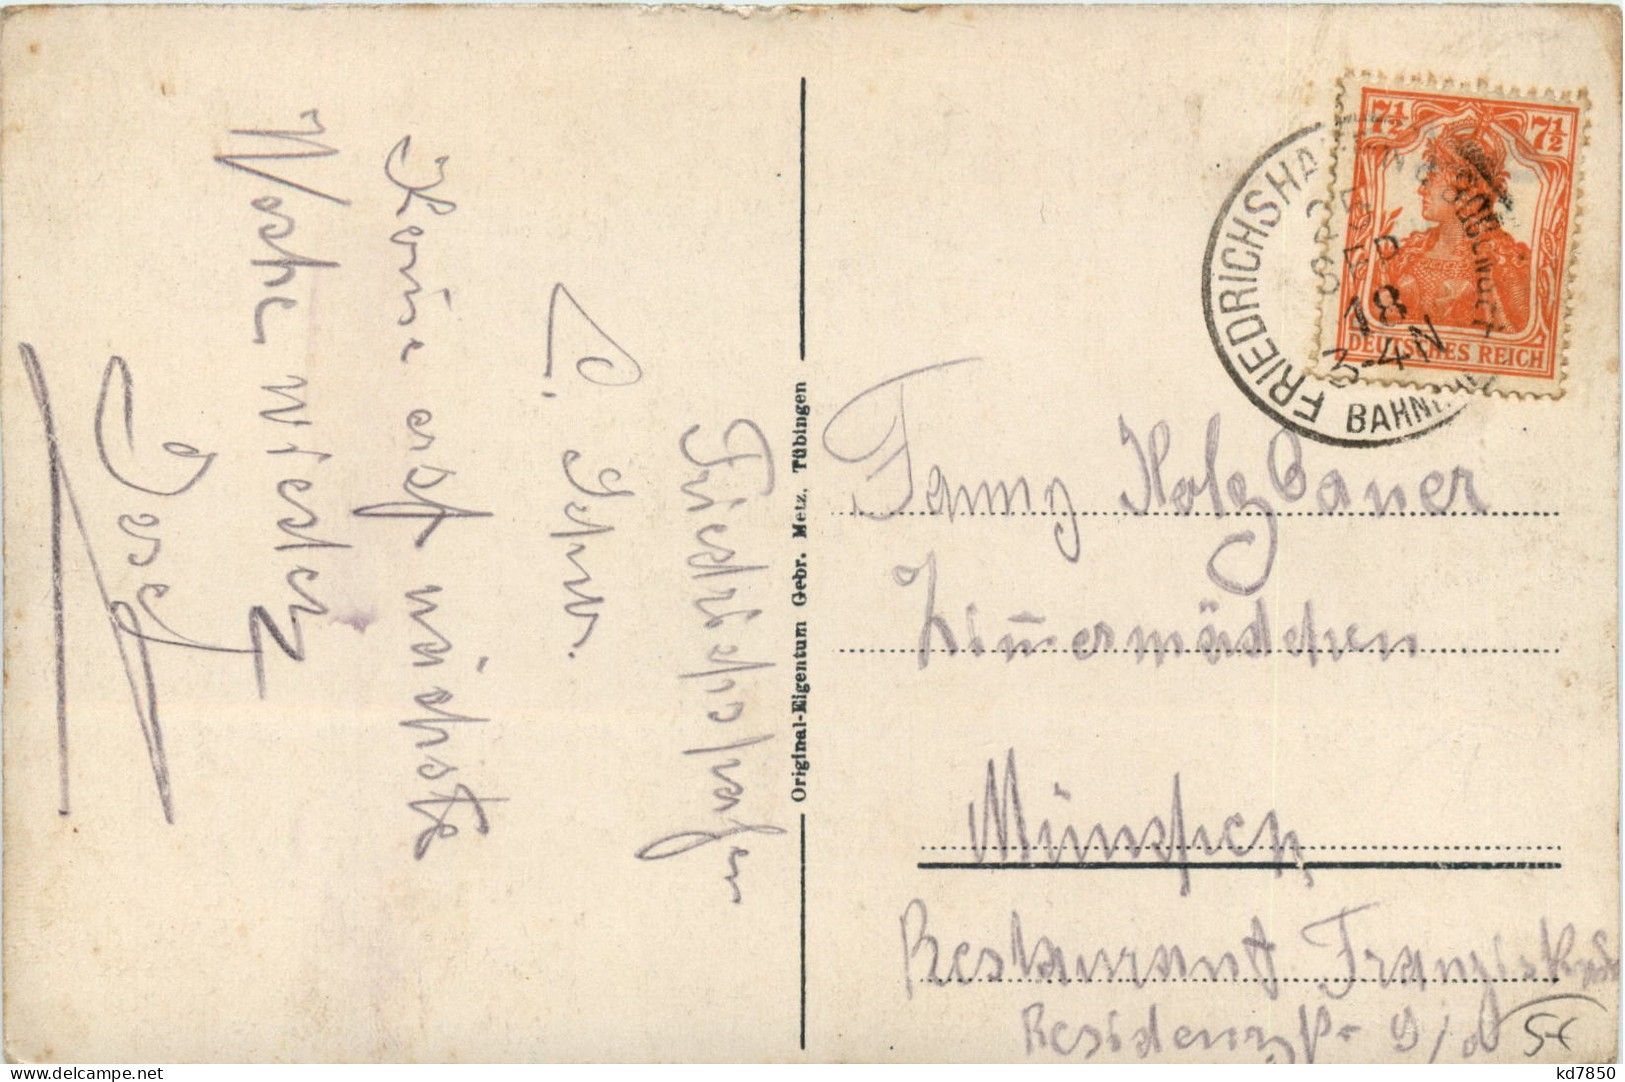 Friedrichshafen
L. Schw.
Komme erst nächste
Woche wieder
Josef
Original-Eigentum Gebr. Metz, Tübingen
7½ 7½
DEUTSCHES REICH
FRIEDRICHSHAFEN
SEP
18
3-4 N
BAHNH
Fanny Holzbauer
Zimermädchen
München
Restaurant Franziskaner
Residenzstr 9/
5-€
kd7850